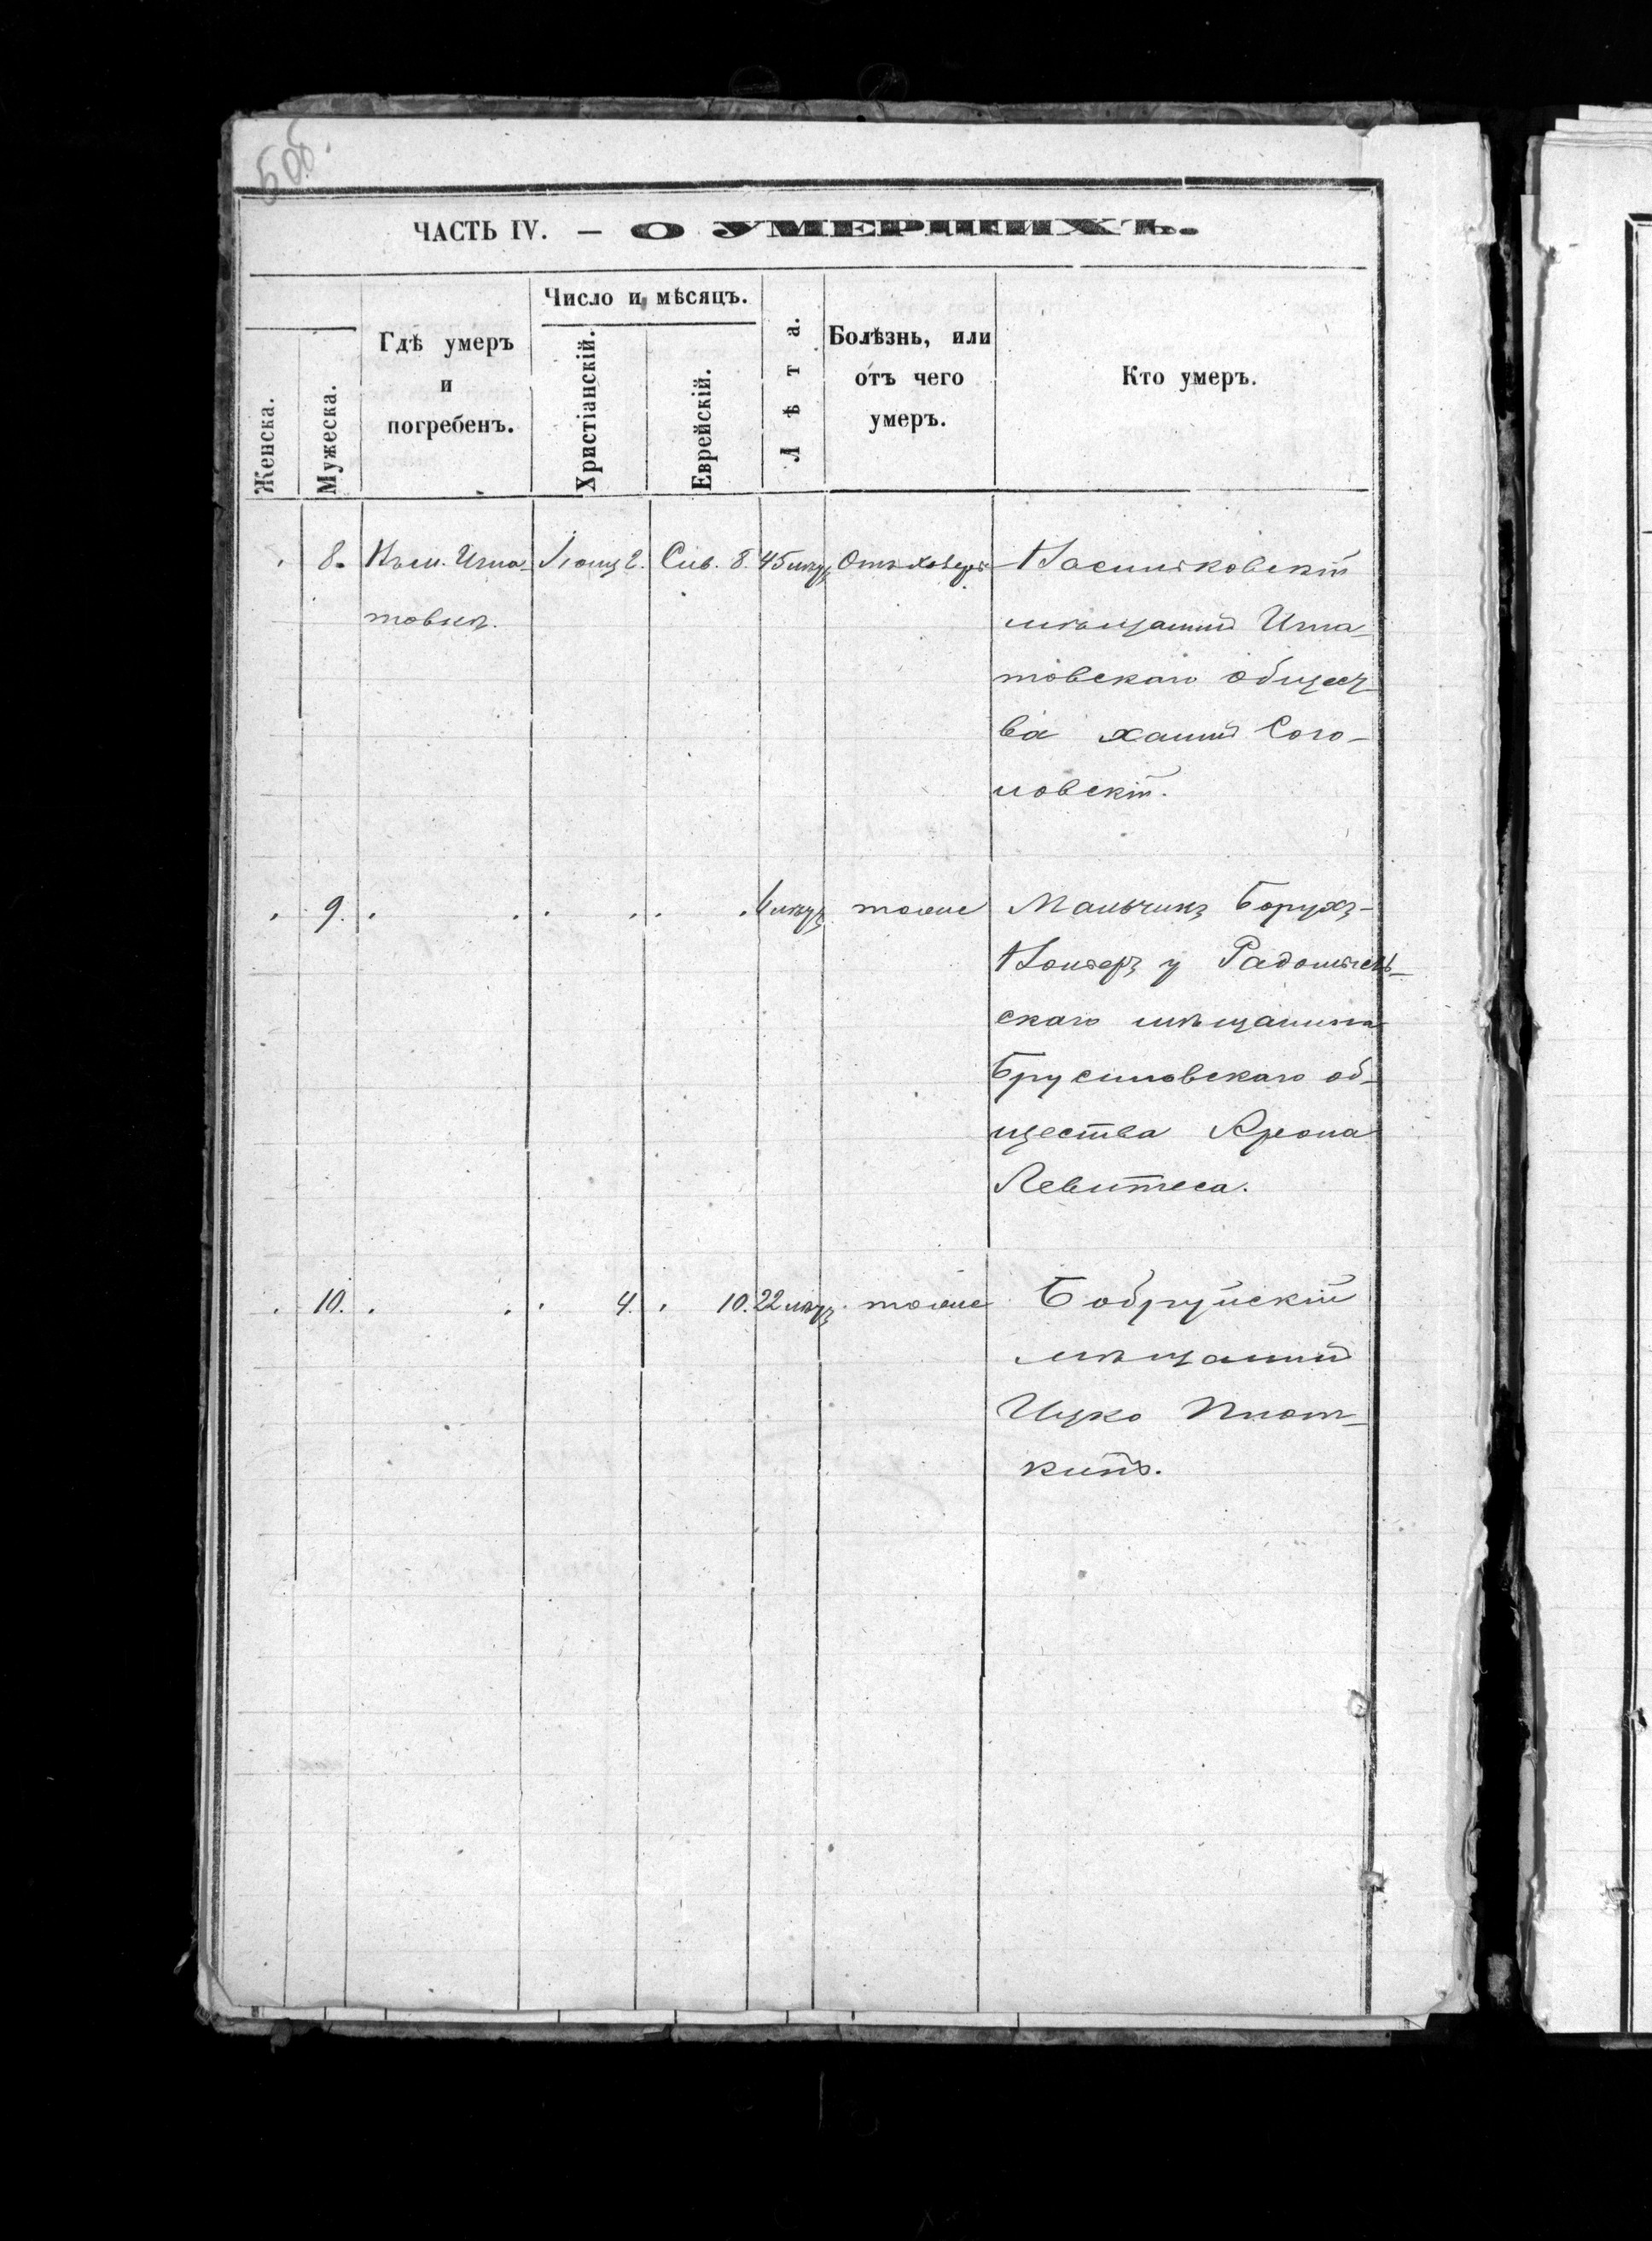 50об.
ЧАСТЬ IV. — О УМЕРШИХЪ.
Женска.
Мужеска.
Гдѣ умеръ
и
погребенъ.
Число и мѣсяцъ.
Христіанскій.
Еврейскій.
Лѣта.
Болѣзнь, или
отъ чего
умеръ.
Кто умеръ.
8. Въ м. Игна- Іюня 2. Сив. 8. 45 лѣтъ Отъ холеры
товкѣ.
Васильковскій
мѣщанинъ Игна-
товскаго общест-
ва Хаимъ Сого-
ловскій.
9. 6 лѣтъ тоже Мальчикъ Борухъ-
у Радомысль-
скаго мѣщанина
Брусиловскаго об-
щества Арона
Левитеса.
10. 4. 10. 22 лѣтъ тоже Бобруйскій
мѣщанинъ
Ицко Плот-
кинъ.